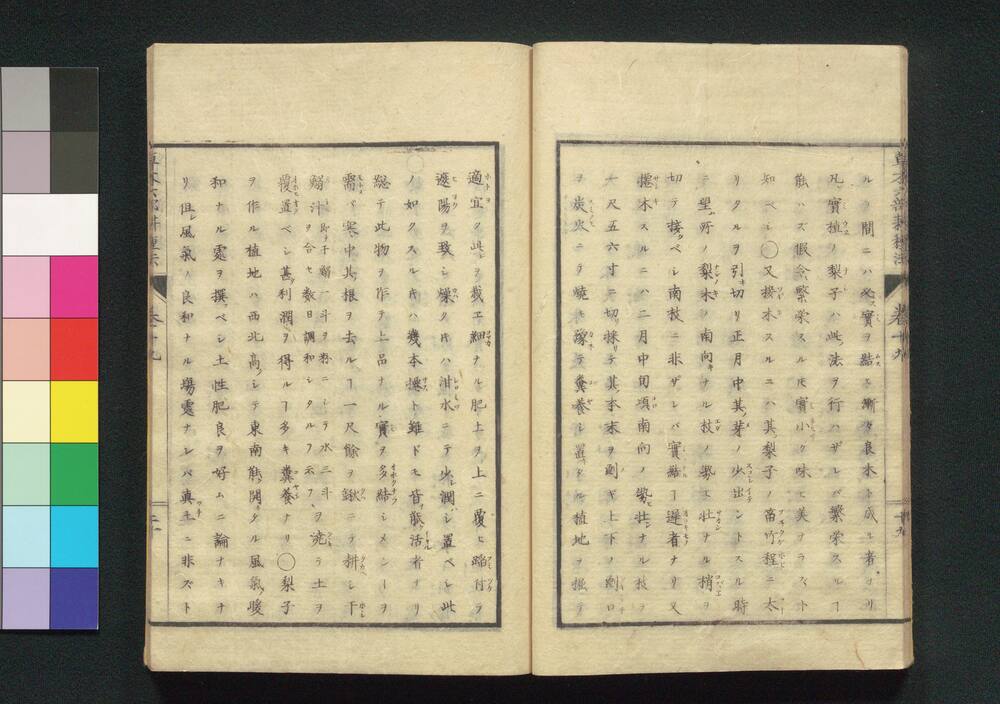 ルヿノ間ニハ必ズ實ヲ結ビ漸々良木ト成ル者ナリ
凡ソ實植ノ梨子ハ此法ヲ行ハザレバ繁栄スルヿ
能ハズ假令繁栄スルトモ實小ク味ヒ美ヲラズト
知ベシ〇又接木スルニハ其梨子ノ笛竹程ニ太
リタルヲ引切リ正月中其芽ノ少出ントスル時
ニ望所ノ梨木ノ南向ナル枝ノ勢ヒ壮ナル梢ヲ
切テ接ベシ南枝ニ非ザレバ實結ヿ遅者ナリ又
捲木スルニハ二月中旬頃南向ノ勢壮ナル枝ヲ
一尺五六寸ニ切採リテ其本末ヲ削ギ上下ノ削口
ヲ炭火ニテ焼キ豫テ糞養シ置タル植地ヲ掘テ
適宜ク此ヲ栽エ細ナル肥土ヲ上ニ覆ヒ踏付テ
遮陽ヲ致シ燥クトキハ泔水ニテ少潤シ置ベシ此
ノ如クスルトキハ幾本捶ト雖ドモ皆能活者ナリ
総テ此物ヲ作テ上品ナル實ヲ多結シメンヿヲ
需バ寒中其根ヲ去ルヿ一尺餘ヲ鍬ニテ耕シ干
鰯汁ヲ合セ数日調和シタルヲ云フヲ澆テ土ヲ
即チ干鰯一斗ヲ粉ニシテ水二斗
覆置ベシ甚利潤ヲ得ルヿ多キ糞養ナリ〇梨子
ヲ作ル植地ハ西北高シテ東南能開タル風氣暖
和ナル處ヲ撰ベシ土性肥良ヲ好ムニ論ナキナ
リ但シ風氣ノ良和ナル場處ナレバ真土ニ非ズト